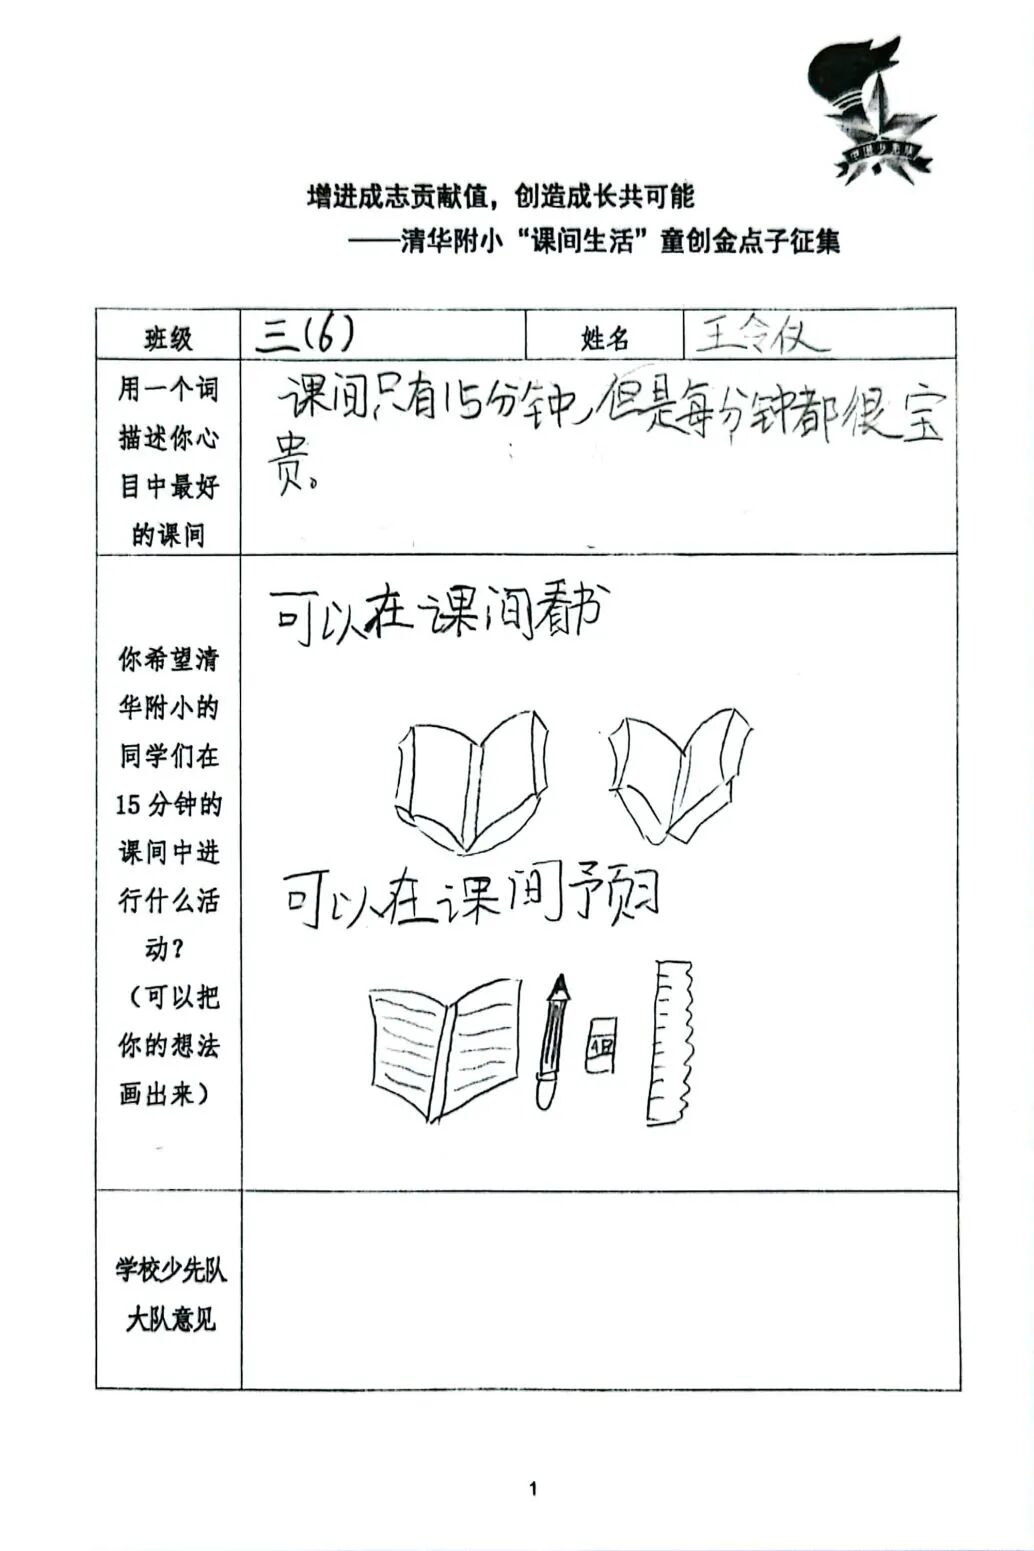 中国少先队
增进成志贡献值，创造成长共可能
——清华附小“课间生活”童创金点子征集
班级
三(6)
姓名
王令仪
用一个词
描述你心
目中最好
的课间
课间只有15分钟,但是每分钟都很宝
贵。
你希望清
华附小的
同学们在
15分钟的
课间中进
行什么活
动？
（可以把
你的想法
画出来）
可以在课间看书
可以在课间预习
学校少先队
大队意见
1